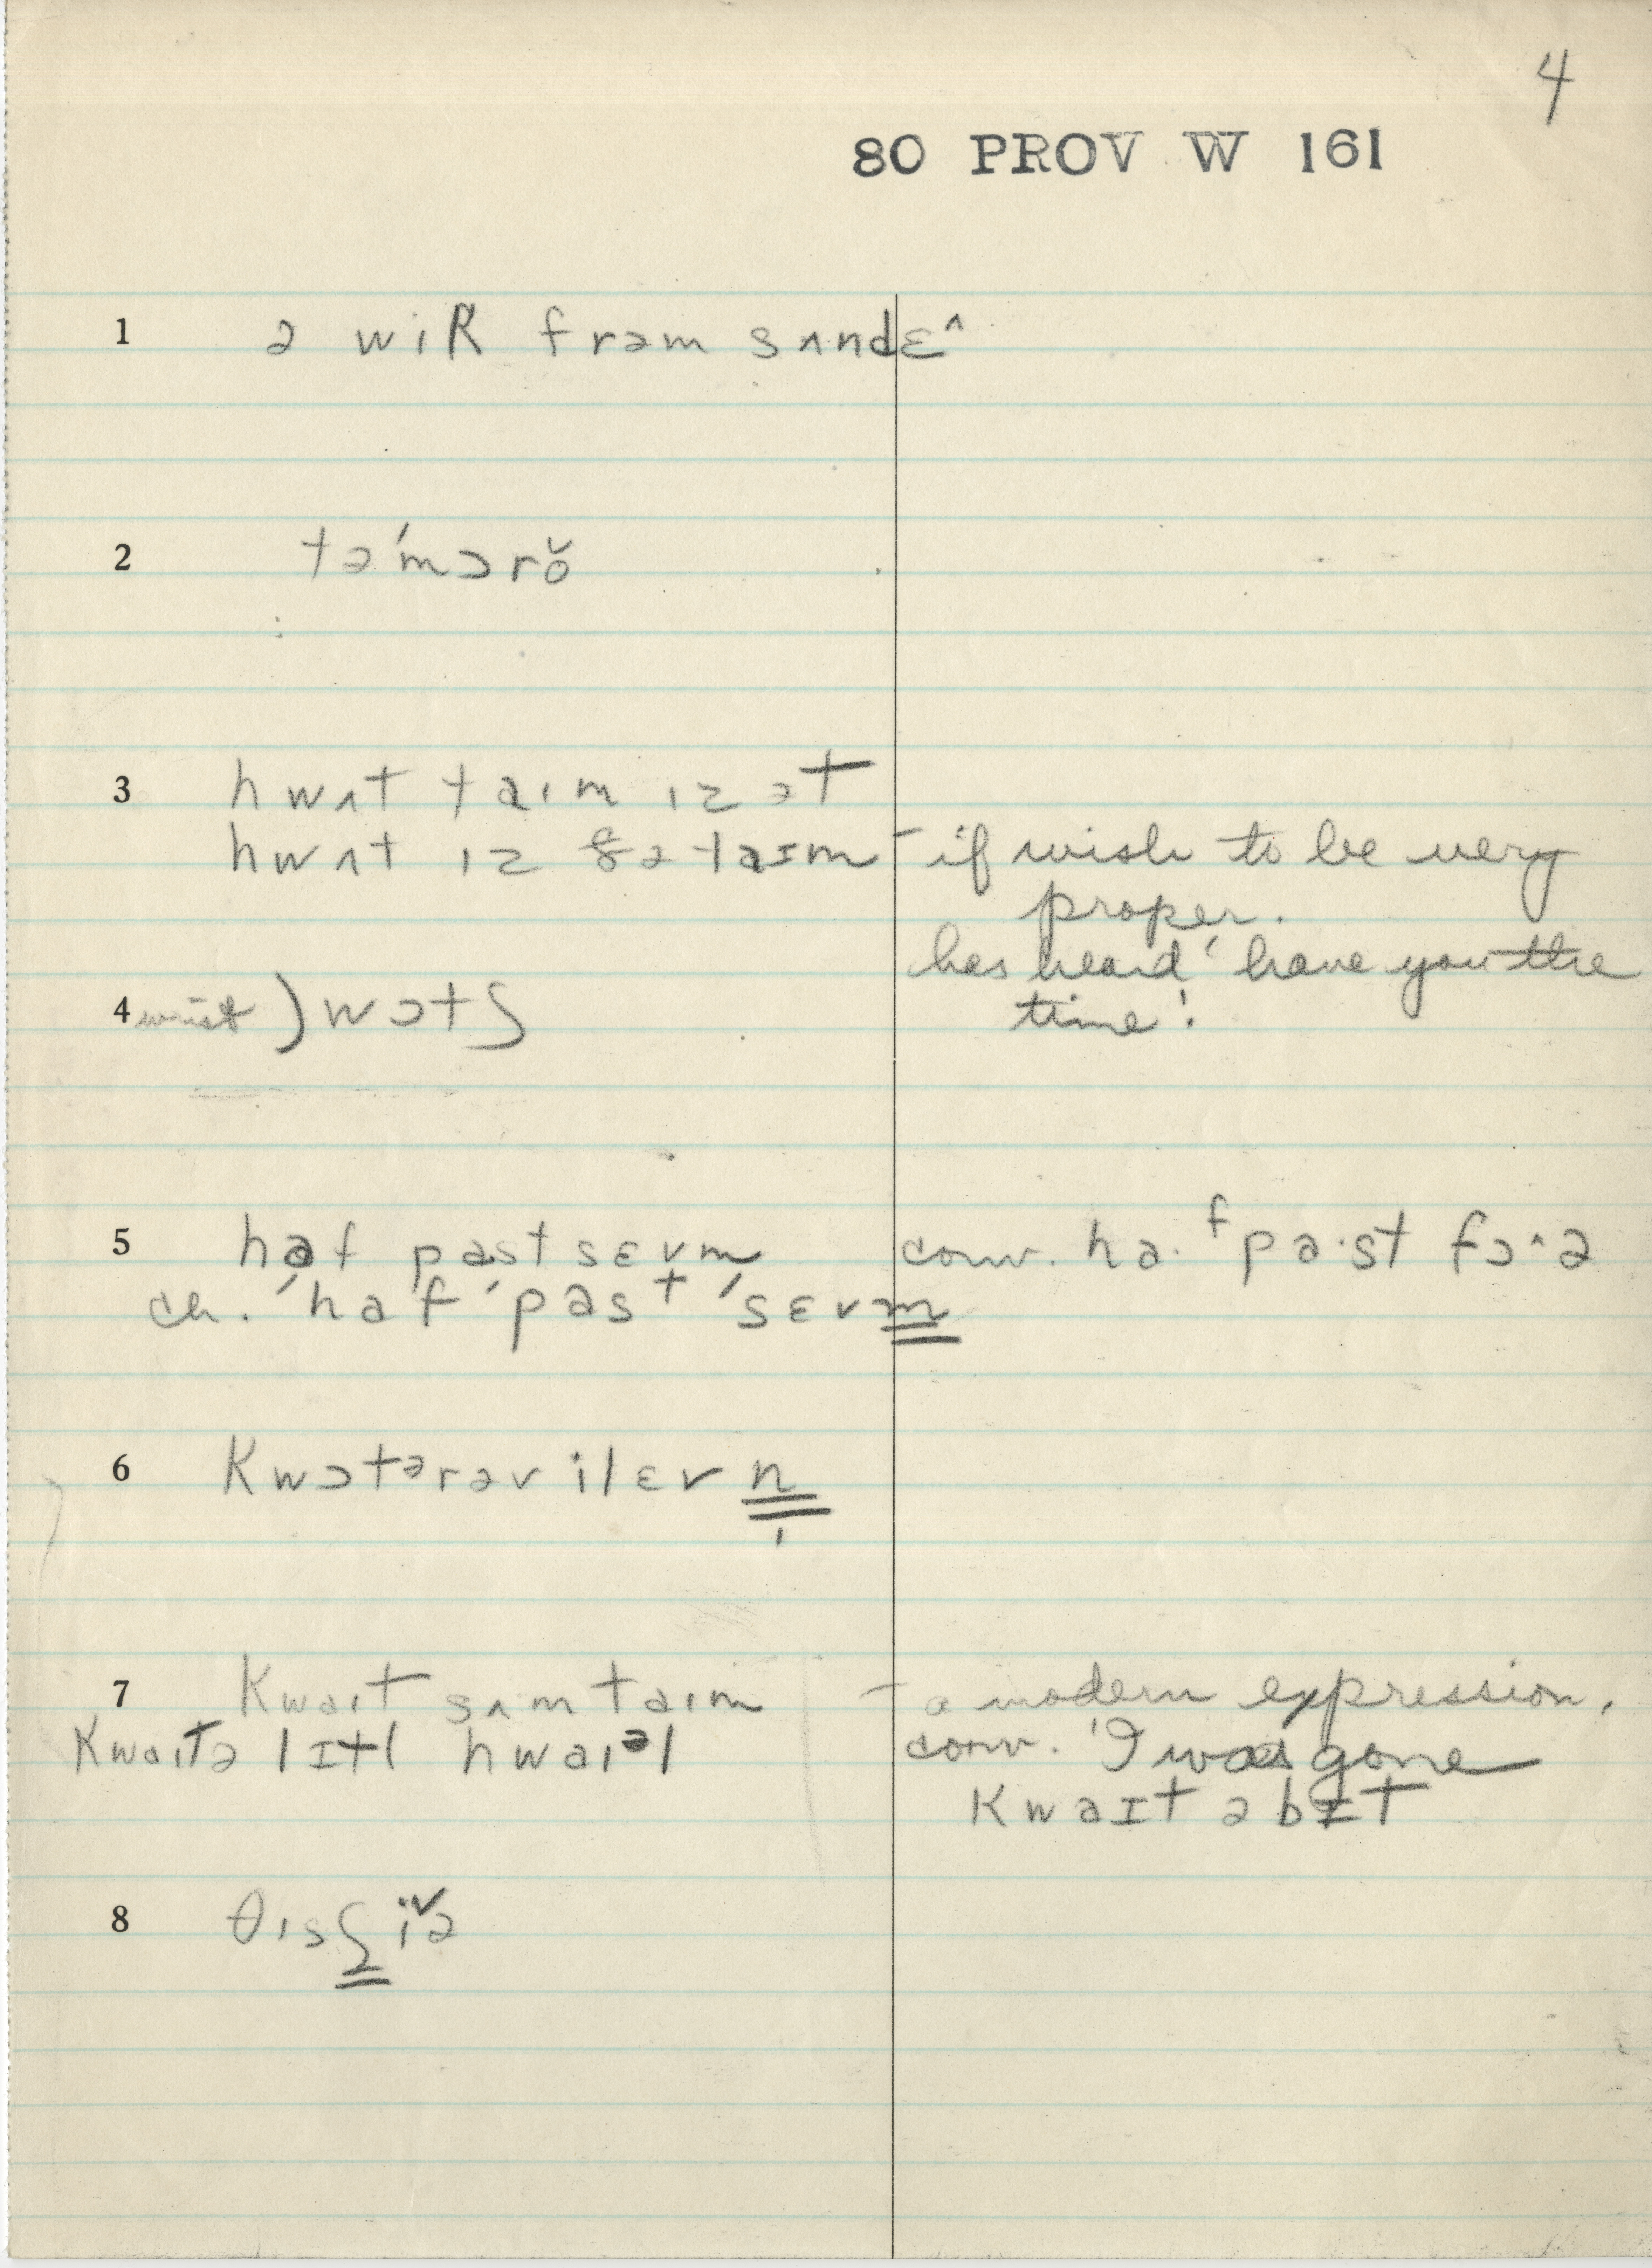 4
80 PROV W 161
1 ə wik frəm sʌndɛ^
2 tə'mɔrǒ
3 hwʌt taɪm ɪz ət
hwʌt ɪz ðə taɪm – if wish to be very
proper.
has heard 'have you the
4 wrist) wɔtʃ time'.
5 haf past sɛvm conv. ha·f pa·st fɔ^ə
ch. 'haf 'past 'sɛvm
6 kwɔtərəv ilɛvn̩
7 kwaɪt sʌmtaɪm – a modern expression.
kwaɪtə lɪtl hwaɪəl conv. 'I was gone
kwaɪt ə bɪt
8 ðɪsʃiˇə